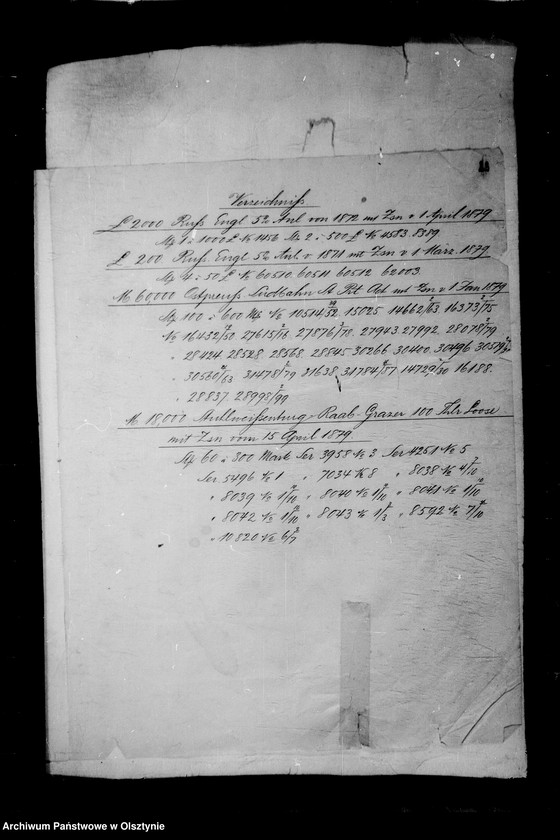 Verzeichniß
£ 2000 Ruß Engl 5% Anl von 1872 mit Zsn v 1 April 1879
Stk 1 : 1000 £ № 1456 Stk 2 : 500 £ № 4583. 8389
£ 200 Ruß. Engl 5% Anl. v 1871 mit Zsn v 1 März. 1879
Stk 4 : 50 £ № 60510. 60511 60512 62003.
M 60000 Ostpreuß Südbahn St Prt Obl mit Zsn v 1 Jan 1879
Stk 100 : 600 Mk № 10514/32 15025 14662/63 16373/75
№ 16432/50 27615/16 27876/78. 27943 27992. 28078/79
" 28424. 28528. 28568. 28845 30266. 30400. 30496. 30519
" 30560/63 31478/79 31638. 31784/87 14729/30 16188.
" 28837. 28998/99
M 18,000 Stuhlweißenburg-Raab-Grazer 100 Thlr Loose
mit Zsn vom 15 April 1879.
Stk 60 : 300 Mark Ser 3958 № 3 Ser 4251 № 5
Ser 5496 № 1 " 7034 № 8 " 8038 № 4/10
" 8039 № 1/10 " 8040 № 1/10 " 8041 № 1/10
" 8042 № 1/10 " 8043 № 1/3 " 8592 № 7/10
" 10820 № 6/7
Archiwum Państwowe w Olsztynie